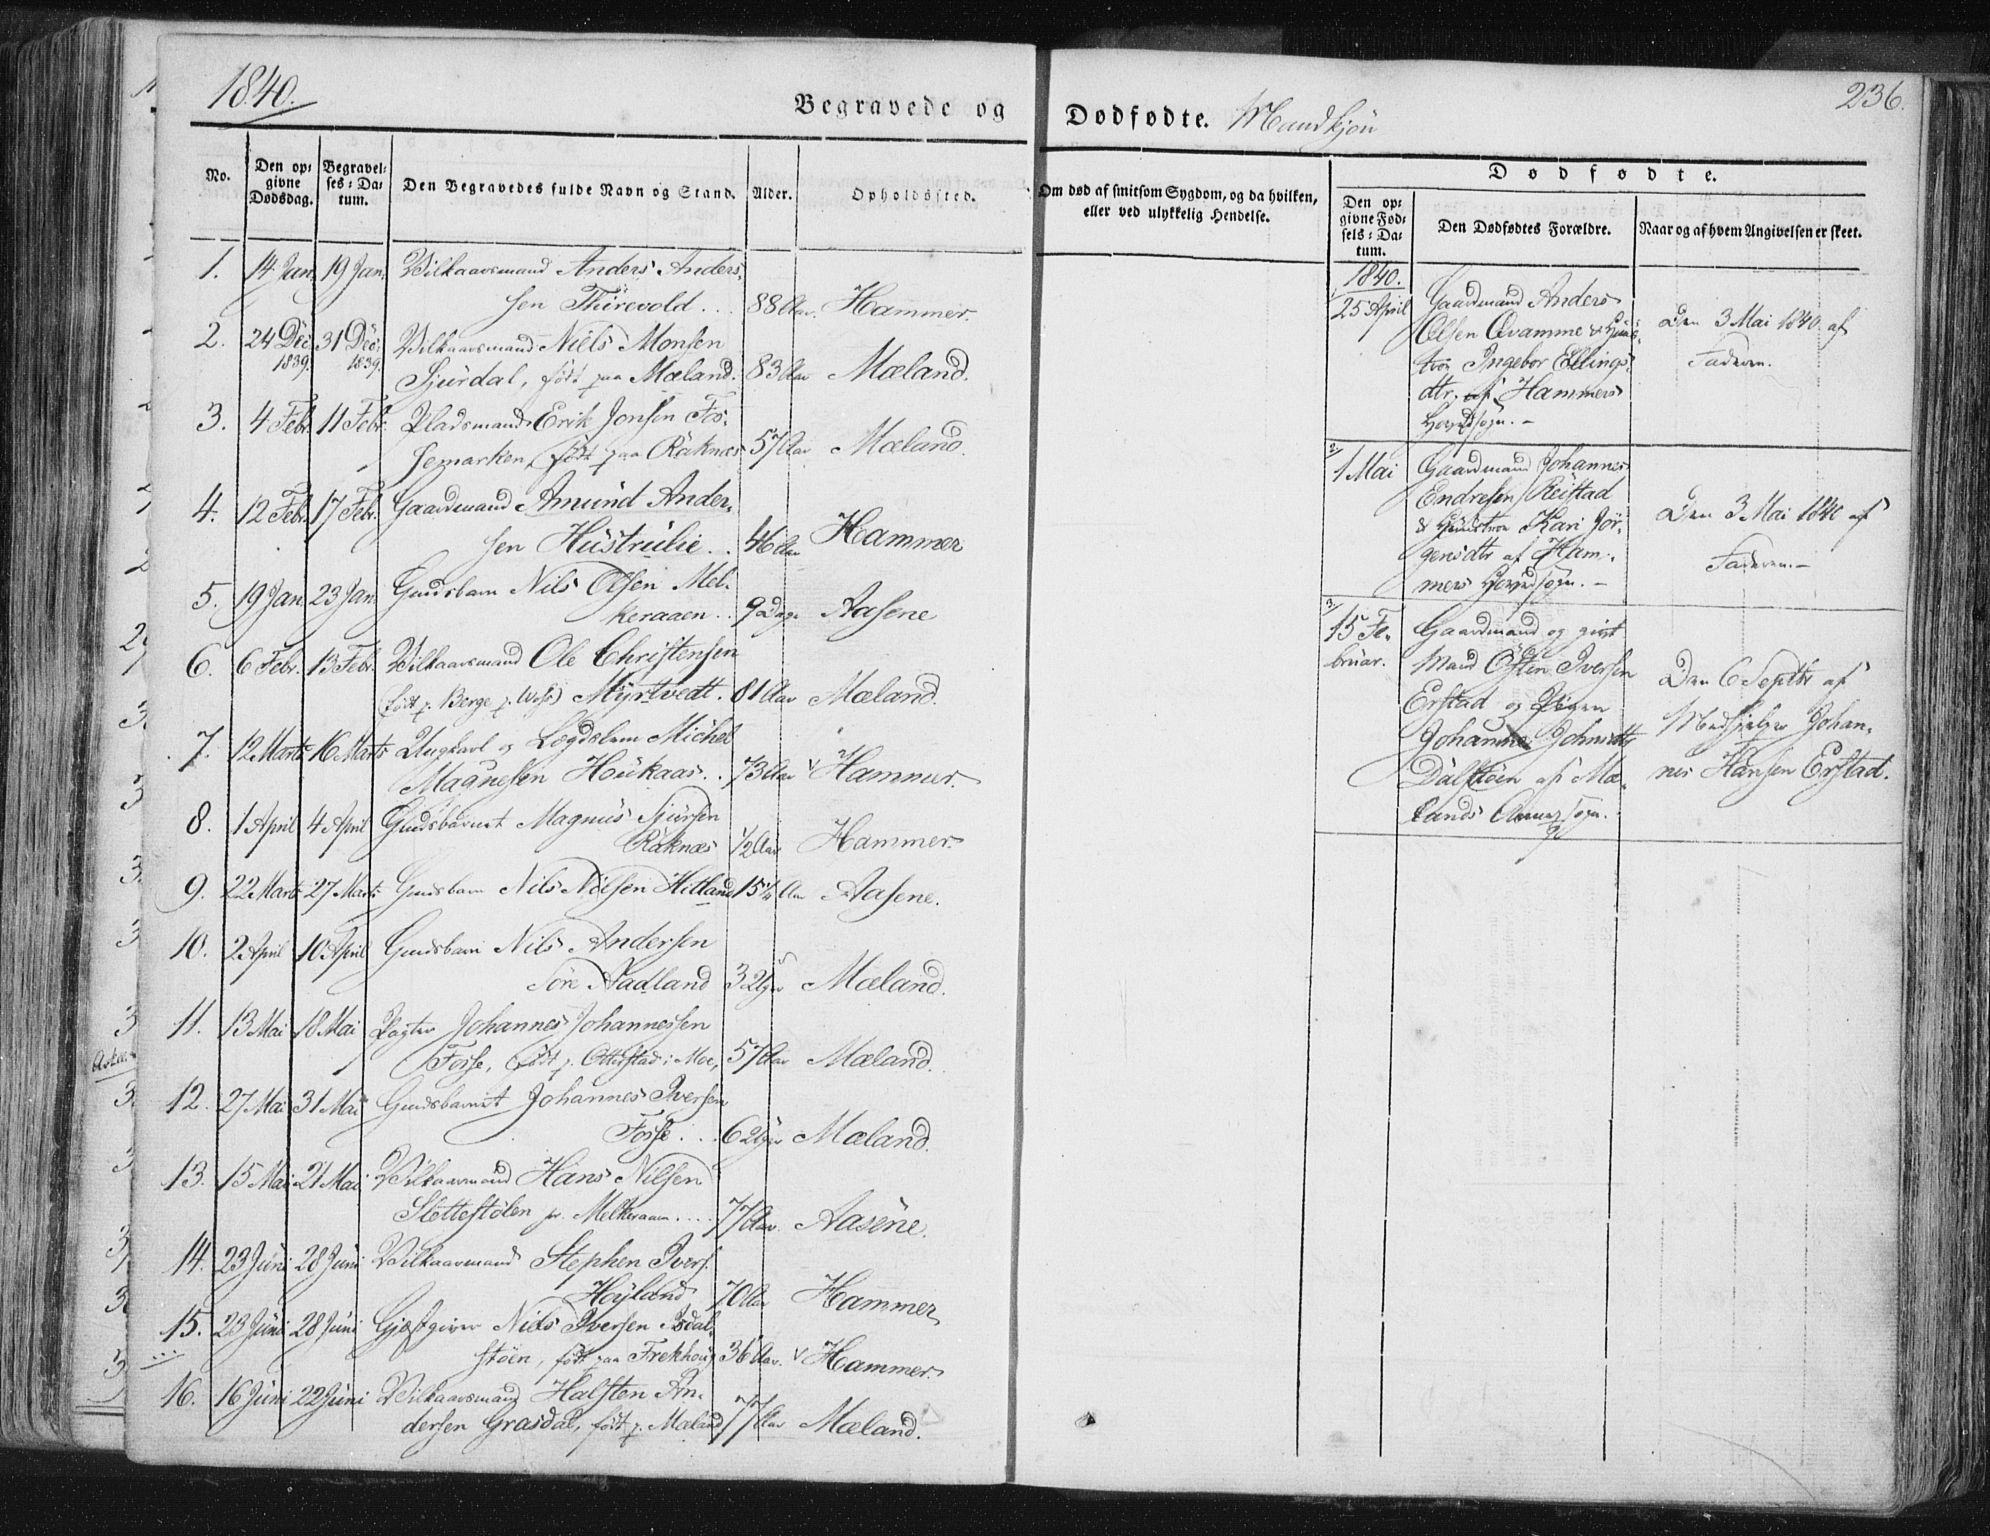 1840.
Begravede og
No.
Den op-
givne
Dødsdag.
Begravel-
ses-Da-
tum.
Den Begravedes fulde Navn og Stand.
Alder.
Opholdssted.
1. 14 Jan. 19 Jan. Vilkaarsmand Anders Anders-
sen Thürevold .. 88 Aar. Hammer.
2. 24 Dec. 31 Dec. Vilkaarsmand Niels Monsen
1839. 1839.
Sjurdal, født paa Mæland. 83 Aar Mæland.
3. 4 Febr. 11 Febr. Pladsmand Erik Jonsen Fos-
semarken, født paa Räknæs 57 Aar Mæland.
4. 12 Febr. 17 Febr. Gaardmand Amund Ander-
sen Hüstrulie .. 46 Aar Hammer
5. 19 Jan. 23 Jan. Gudsbarn Nils Olsen Mel-
keraaen .. 9 Dage Aasene
6. 6 Febr. 13 Febr. Vilkaarsmand Ole Christensen
(født p. Berge p. Woss) Myrtvedt. 81 Aar Mæland.
7. 12 Marts 16 Marts Ungkarl og Lægdslem Michel
Magnesen Houkaas .. 73 Aar v Hammer.
8. 1 April 4 April Gudsbarnet Magnus Sjursen
Räknæs 1/2 Aar Hammer.
9. 22 Marts 27 Marts Gudsbarn Nils Nilsen Hitland 15 1/4 Aar Aasene.
10. 2 April 10 April Gudsbarn Nils Andersen
Søre Aadland 3 Uger Mæland.
11. 13 Mai 18 Mai Pagter Johannes Johannessen
Fosse, født p. Otterstad i Moe, 57 Aar Mæland.
12. 27 Mai 31 Mai Gudsbarnet Johannes Iversen
Fosse ... 6 Uger Mæland.
13. 15 Mai 21 Mai Vilkaarmand Hans Nilsen
Slettestølen pr. Melkeraaen .... 77 Aar. Aasene.
14. 23 Juni 28 Juni Vilkaarmand Stephen Ivers.
Høyland 70 Aar Hammer
15. 23 Juni 28 Juni Gjæstgiver Niels Iversen Isdal-
støen, født paa Frekhoug 36 Aar. v Hammer.
16. 16 Juni 22 Juni Vilkaarsmand Halsten An-
dersen Grasdal, født p. Mæland 77 Aar Mæland.
236.
Dødfødte. Mandkjøn
Om død af smitsom Sygdom, og da hvilken,
eller ved ulykkelig Hendelse.
Dødfødte.
Den op-
givne Fød-
sels-Da-
tum.
Den Dødfødtes Forældre.
Naar og af hvem Angivelsen er skeet.
1840.
25 April Gaardmand Anders
Olsen Qvamme & Hus-
tro Ingebor Ellings-
dtr. af Hammers
Hovedsogn. -
Den 3 Mai 1840. af
Faderen.
2/
1 Mai Gaardmand Johannes
Endresen Reistad
& Hüustroe Kari Jør-
gensdtr af Ham-
mers Hovedsogn. -
Den 3 Mai 1840 af
Faderen. -
3/
15 Fe-
bruar.
Gaardmand og gift
Mand Østen Iversen
Erstad og Pigen
Johanna Johnsdtr
Dalstøen af Mæ-
lands Annexsogn.
Den 6 Septbr af
Medhjelper Johan-
nes Hansen Erstad.